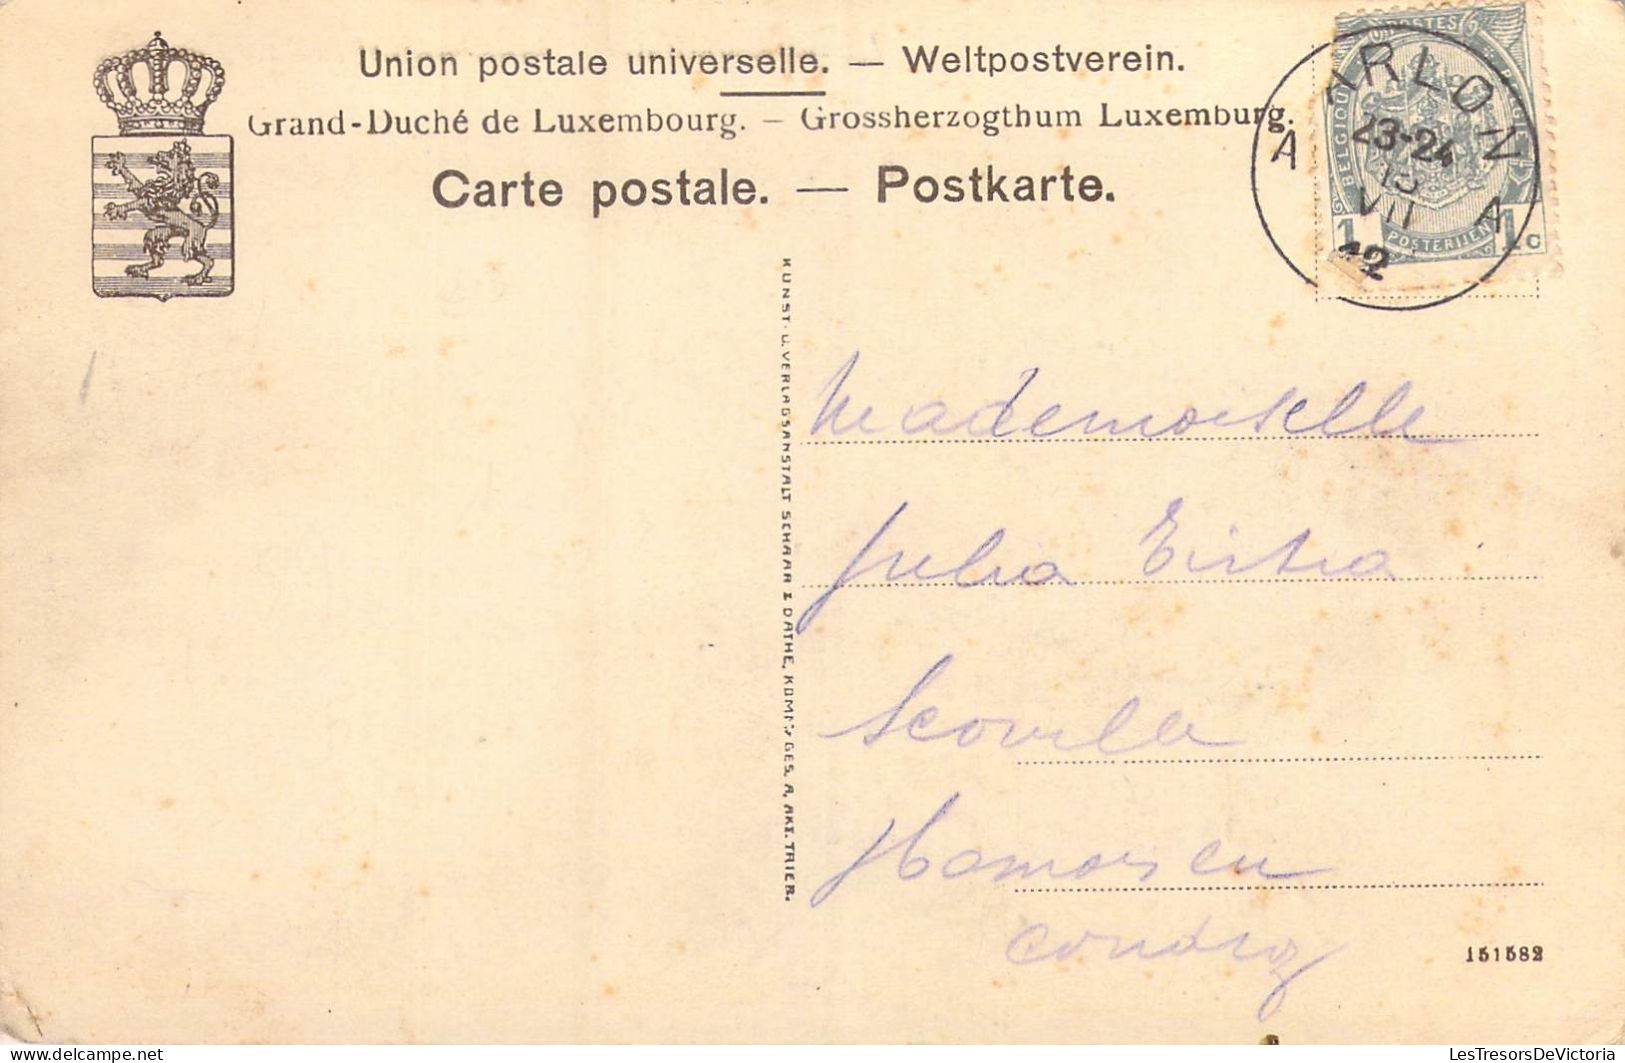 Union postale universelle. — Weltpostverein.
Grand-Duché de Luxembourg. — Grossherzogthum Luxemburg.
Carte postale. — Postkarte.
POSTES
BELGIQUE
1 POSTERIJEN 1c
ARLON
23-24
VII
A A
12
KUNST- U. VERLAGSANSTALT SCHAAR & DATHE, KOMM.-GES. A. AKT. TRIER.
Mademoiselle
Julia
Scoville
Hamois en
Condroz
151582
LesTresorsDeVictoria
delcampe.net